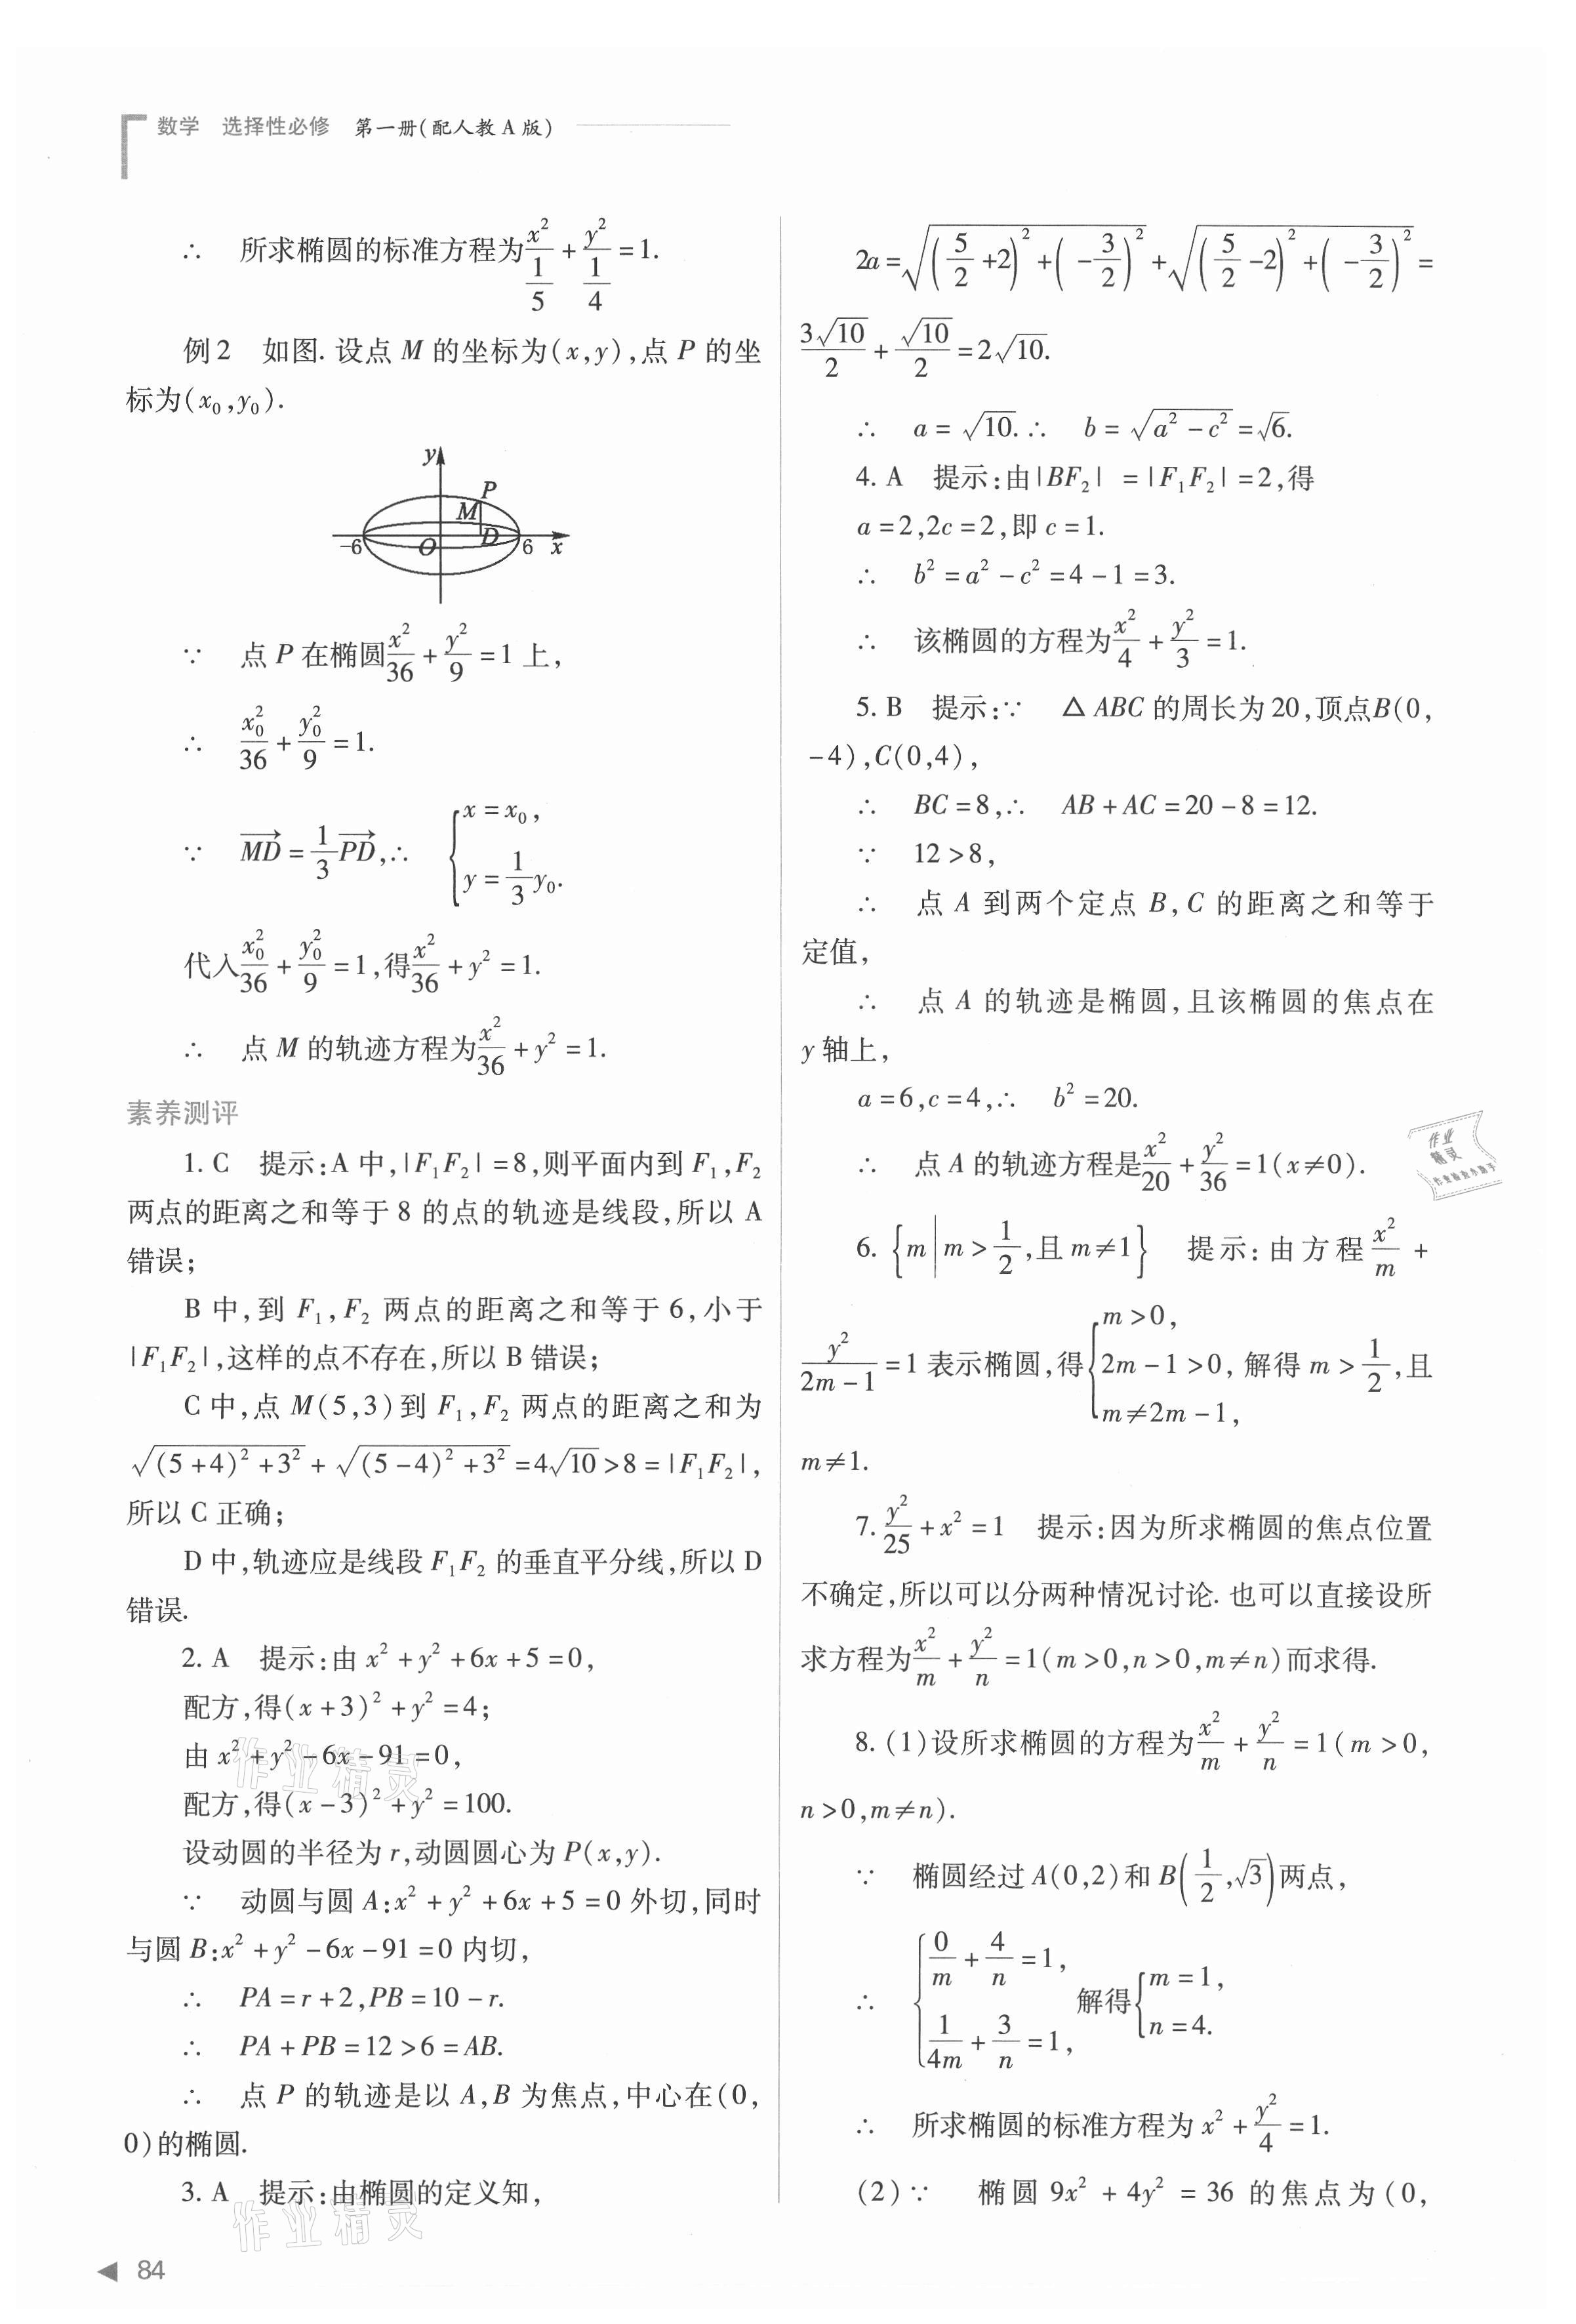 数学 选择性必修 第一册(配人教 A 版)
∴ 所求椭圆的标准方程为x²/(1/5)+y²/(1/4)=1.
例2 如图.设点 M 的坐标为(x,y),点 P 的坐
标为(x₀,y₀).
y
P
M
-6 O D 6 x
∵ 点 P 在椭圆x²/36+y²/9=1 上,
∴ x₀²/36+y₀²/9=1.
∵ MD→=1/3 PD→,∴ {x=x₀,
y=1/3 y₀.
代入x₀²/36+y₀²/9=1,得x²/36+y²=1.
∴ 点 M 的轨迹方程为x²/36+y²=1.
素养测评
1. C 提示:A 中,|F₁F₂|=8,则平面内到 F₁,F₂
两点的距离之和等于 8 的点的轨迹是线段,所以 A
错误;
B 中,到 F₁,F₂ 两点的距离之和等于 6,小于
|F₁F₂|,这样的点不存在,所以 B 错误;
C 中,点 M(5,3)到 F₁,F₂ 两点的距离之和为
√((5+4)²+3²)+√((5-4)²+3²)=4√10>8=|F₁F₂|,
所以 C 正确;
D 中,轨迹应是线段 F₁F₂ 的垂直平分线,所以 D
错误.
2. A 提示:由 x²+y²+6x+5=0,
配方,得(x+3)²+y²=4;
由 x²+y²-6x-91=0,
配方,得(x-3)²+y²=100.
设动圆的半径为 r,动圆圆心为 P(x,y).
∵ 动圆与圆 A:x²+y²+6x+5=0 外切,同时
与圆 B:x²+y²-6x-91=0 内切,
∴ PA=r+2,PB=10-r.
∴ PA+PB=12>6=AB.
∴ 点 P 的轨迹是以 A,B 为焦点,中心在(0,
0)的椭圆.
3. A 提示:由椭圆的定义知,
2a=√((5/2+2)²+(-3/2)²)+√((5/2-2)²+(-3/2)²)=
3√10/2+√10/2=2√10.
∴ a=√10.∴ b=√(a²-c²)=√6.
4. A 提示:由|BF₂|=|F₁F₂|=2,得
a=2,2c=2,即 c=1.
∴ b²=a²-c²=4-1=3.
∴ 该椭圆的方程为x²/4+y²/3=1.
5. B 提示:∵ △ABC 的周长为 20,顶点B(0,
-4),C(0,4),
∴ BC=8,∴ AB+AC=20-8=12.
∵ 12>8,
∴ 点 A 到两个定点 B,C 的距离之和等于
定值,
∴ 点 A 的轨迹是椭圆,且该椭圆的焦点在
y 轴上,
a=6,c=4,∴ b²=20.
∴ 点 A 的轨迹方程是x²/20+y²/36=1(x≠0).
6. {m|m>1/2,且 m≠1} 提示:由方程x²/m+
y²/(2m-1)=1 表示椭圆,得{m>0,
2m-1>0, 解得 m>1/2,且
m≠2m-1,
m≠1.
7. y²/25+x²=1 提示:因为所求椭圆的焦点位置
不确定,所以可以分两种情况讨论.也可以直接设所
求方程为x²/m+y²/n=1(m>0,n>0,m≠n)而求得.
8. (1)设所求椭圆的方程为x²/m+y²/n=1(m>0,
n>0,m≠n).
∵ 椭圆经过 A(0,2)和 B(1/2,√3)两点,
∴ {0/m+4/n=1,
1/4m+3/n=1, 解得{m=1,
n=4.
∴ 所求椭圆的标准方程为 x²+y²/4=1.
(2)∵ 椭圆 9x²+4y²=36 的焦点为(0,
作业精灵
作业精灵
作业精灵
84